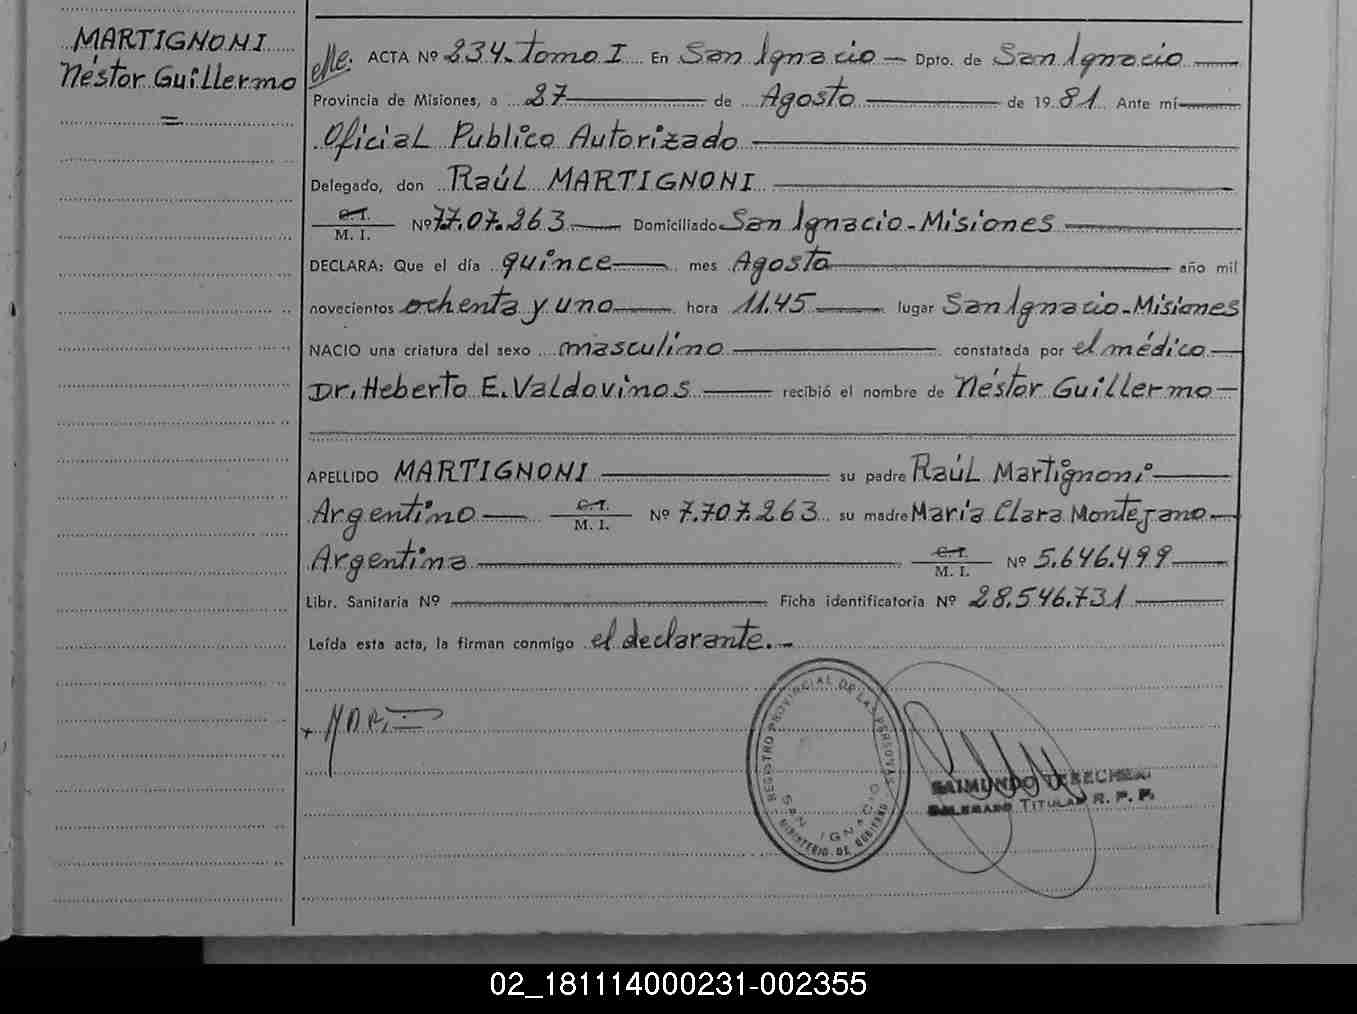 MARTIGNONI
Néstor Guillermo
=
ACTA Nº 234. Tomo I En San Ignacio — Dpto. de San Ignacio —
Provincia de Misiones, a 27 — de Agosto — de 1981 Ante mí —
Oficial Publico Autorizado —
Delegado, don Raúl MARTIGNONI —
C.I.
M. I. Nº 7.707.263 — Domiciliado San Ignacio - Misiones —
DECLARA: Que el día quince — mes Agosto — año mil
novecientos ochenta y uno — hora 11.45 — lugar San Ignacio - Misiones
NACIO una criatura del sexo masculino — constatada por el médico —
Dr. Heberto E. Valdovinos — recibió el nombre de Néstor Guillermo —
APELLIDO MARTIGNONI — su padre Raúl Martignoni —
Argentino — C.I.
M. I. Nº 7.707.263 su madre María Clara Montejano —
Argentina — C.I.
M. I. Nº 5.646.499 —
Libr. Sanitaria Nº — Ficha identificatoria Nº 28.546.731 —
Leída esta acta, la firman conmigo el declarante. -
REGISTRO PROVINCIAL DE LAS PERSONAS
SAN IGNACIO
MINISTERIO DE GOBIERNO
DELEGADO TITULAR R. P. P.
02_181114000231-002355